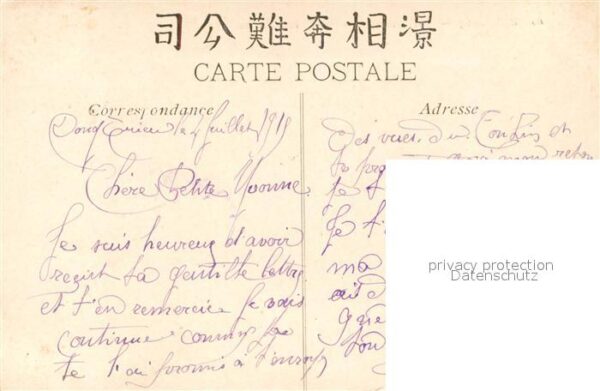 司公難奔相濝
CARTE POSTALE
Correspondance
Adresse
Dong Trieu le 4 Juillet 1915
Chère Petite Yvonne
Je suis heureux d'avoir
reçut ta gentille lettre
et t'en remercie je vais
continuer comme je
te l'ai promis à t'envoyer
Des vues du Tonkin et
te
mon
Je t'
ma
que
privacy protection
Datenschutz